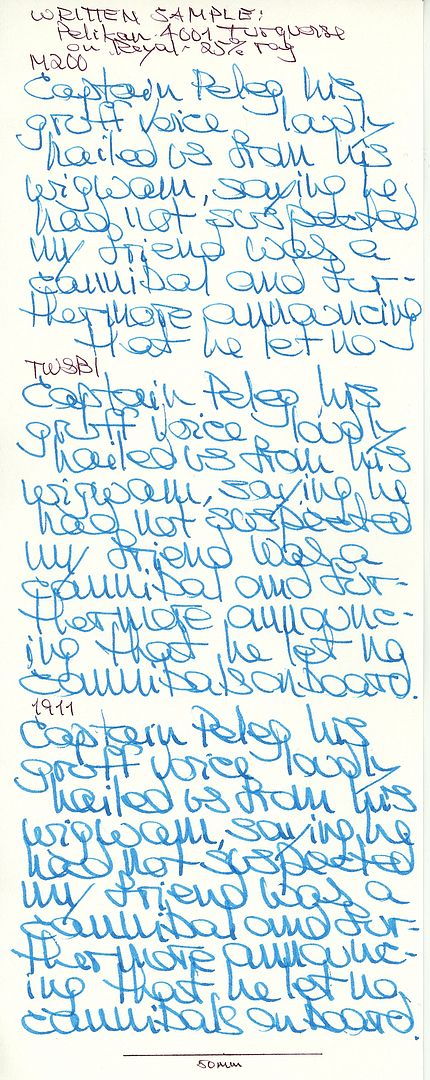 WRITTEN SAMPLE:
Pelikan 4001 Turquoise
on Royal - 25% rag
M200
Captain Peleg his
gruff voice loudly
hailed us from his
wigwam, saying he
had not suspected
my friend was a
cannibal and fur-
thermore announcing
that he let no
TWSBI
Captain Peleg his
gruff voice loudly
hailed us from his
wigwam, saying he
had not suspected
my friend was a
cannibal and fur-
thermore announc-
ing that he let no
cannibals on board.
1911
Captain Peleg his
gruff voice loudly
hailed us from his
wigwam, saying he
had not suspected
my friend was a
cannibal and fur-
thermore announc-
ing that he let no
cannibals on board.
50mm